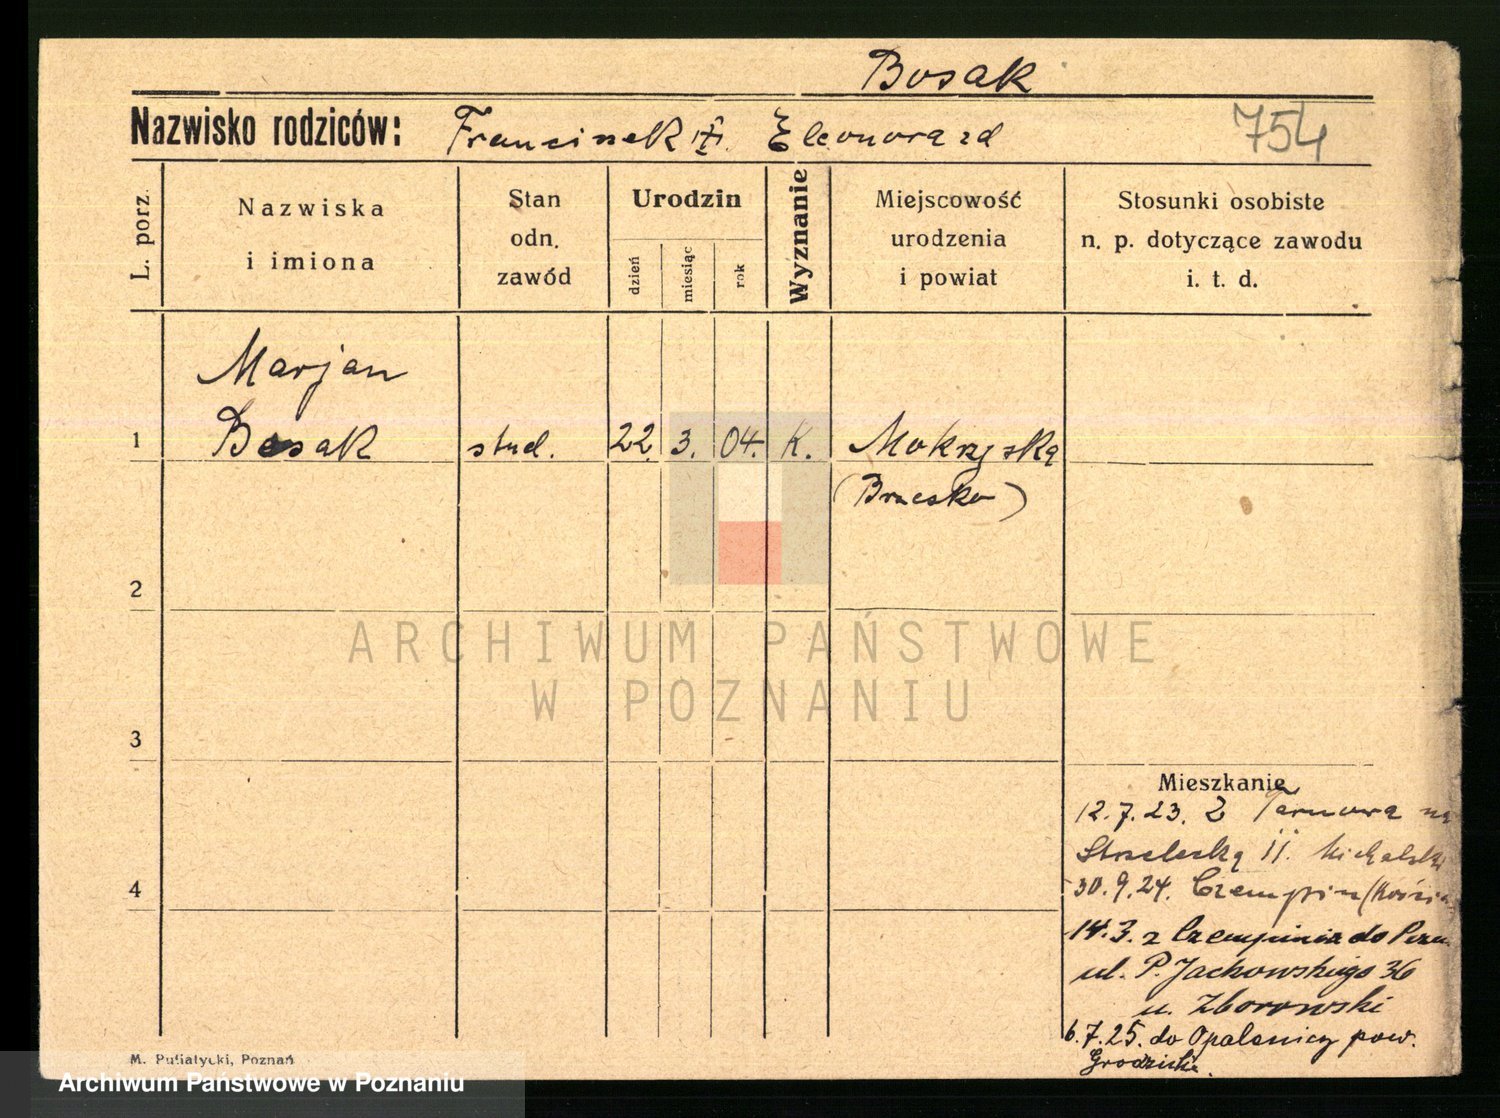 Bosak
Nazwisko rodziców: Franciszek Eleonora zd
754
L. porz.
Nazwiska
i imiona
Stan
odn.
zawód
Urodzin
dzień
miesiąc
rok
Wyznanie
Miejscowość
urodzenia
i powiat
Stosunki osobiste
n. p. dotyczące zawodu
i. t. d.
Marjan
1 Bosak stud. 22. 3. 04. K. Mokrzyska
(Brzesko)
2
ARCHIWUM PAŃSTWOWE
W POZNANIU
3
Mieszkanie
12.7.23. Z Tarnowa na
Strzelecką 11. Michalski
4
30.9.24. Czempin
14.3. z Czempinia do Pozn.
ul. P. Jackowskiego 36
u. Zborowski
6.7.25. do Opalenicy pow.
Grodzisk.
M. Putiatycki, Poznań
Archiwum Państwowe w Poznaniu